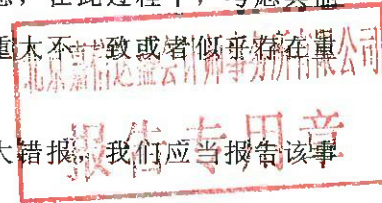 息，在此过程中，考虑其他
重大不一致或者似乎存在重
北京嘉信达盛会计师事务所有限公司
大错报，我们应当报告该事
报告专用章